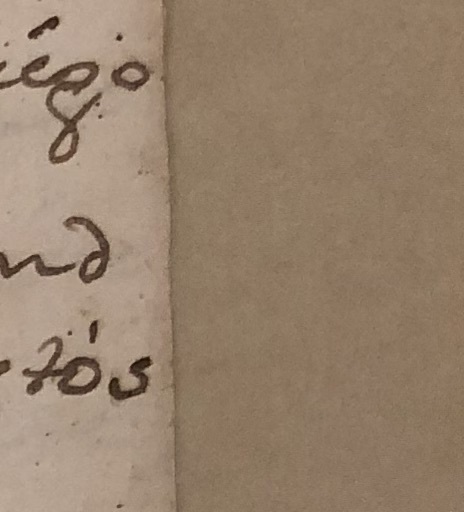 iégo
nd
tós